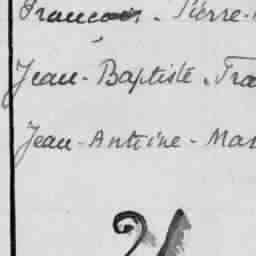 François. Pierre-
Jean-Baptiste. Fra
Jean-Antoine-Mar